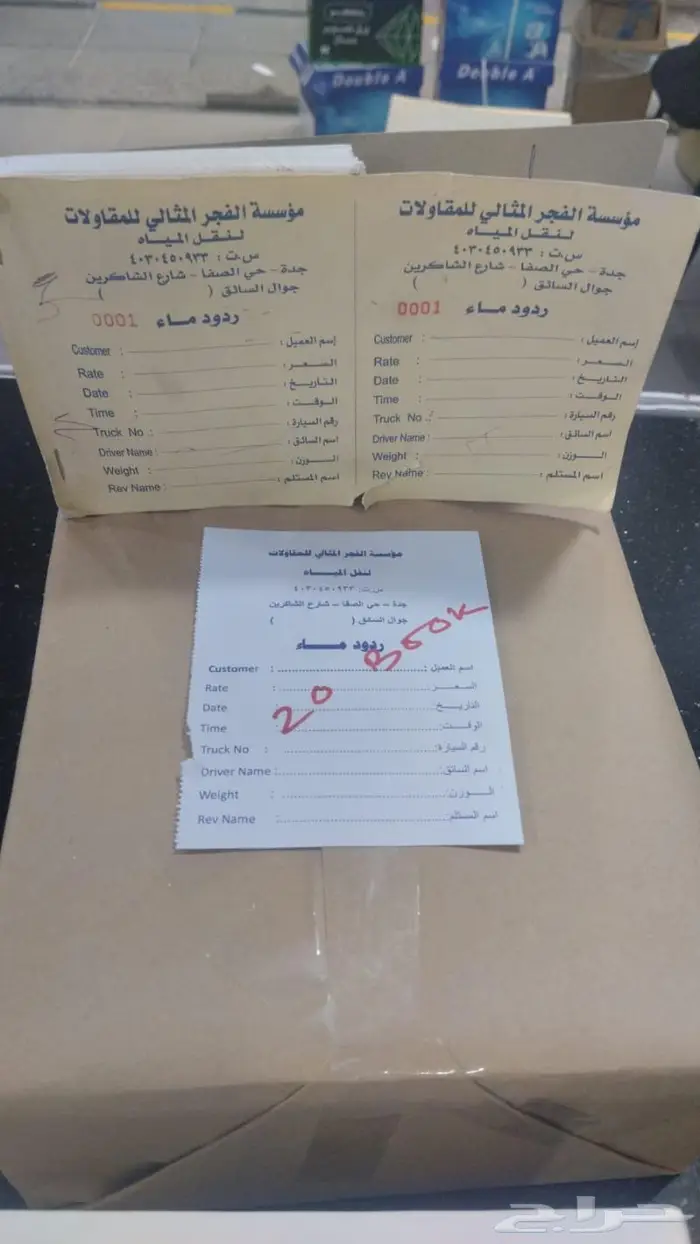 Double A
Double A
مؤسسة الفجر المثالي للمقاولات
لنقل الميـــاه
س.ت : ٤٠٣٠٤٥٠٩٣٣
جدة - حي الصفا - شارع الشاكرين
جوال السائق ( )
ردود مـاء 0001
Customer : إسم العميل :
Rate : السـعـر :
Date : التاريـخ :
Time : الوقـت :
Truck No .: رقم السيارة :
Driver Name : اسم السائق :
Weight : الـوزن :
Rev Name : اسم المستلم :
مؤسسة الفجر المثالي للمقاولات
لنقل الميـــاه
س.ت : ٤٠٣٠٤٥٠٩٣٣
جدة - حي الصفا - شارع الشاكرين
جوال السائق ( )
ردود مـاء 0001
Customer : إسم العميل :
Rate : السـعـر :
Date : التاريـخ :
Time : الوقـت :
Truck No .: رقم السيارة :
Driver Name : اسم السائق :
Weight : الـوزن :
Rev Name : اسم المستلم :
مؤسسة الفجر المثالي للمقاولات
لنقل الميـــاه
س.ت: ٤٠٣٠٤٥٠٩٣٣
جدة - حي الصفا - شارع الشاكرين
جوال السائق ( )
ردود مـــاء
20 BOOK
Customer : اسم العميل :
Rate : السعـــر:
Date التاريـــخ:
Time : الوقـــت:
Truck No : رقم السيارة:
Driver Name : اسم السائق:
Weight : الـــوزن:
Rev Name : اسم الستلم:
حراج